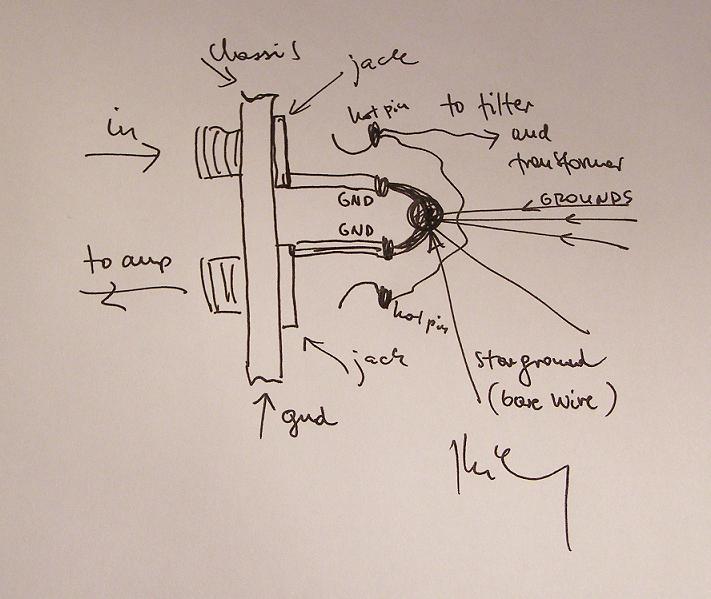 chassis
jack
in
hot pin
to filter
and
transformer
GND
GROUNDS
GND
to amp
hot pin
jack
starground
(bare wire)
gnd